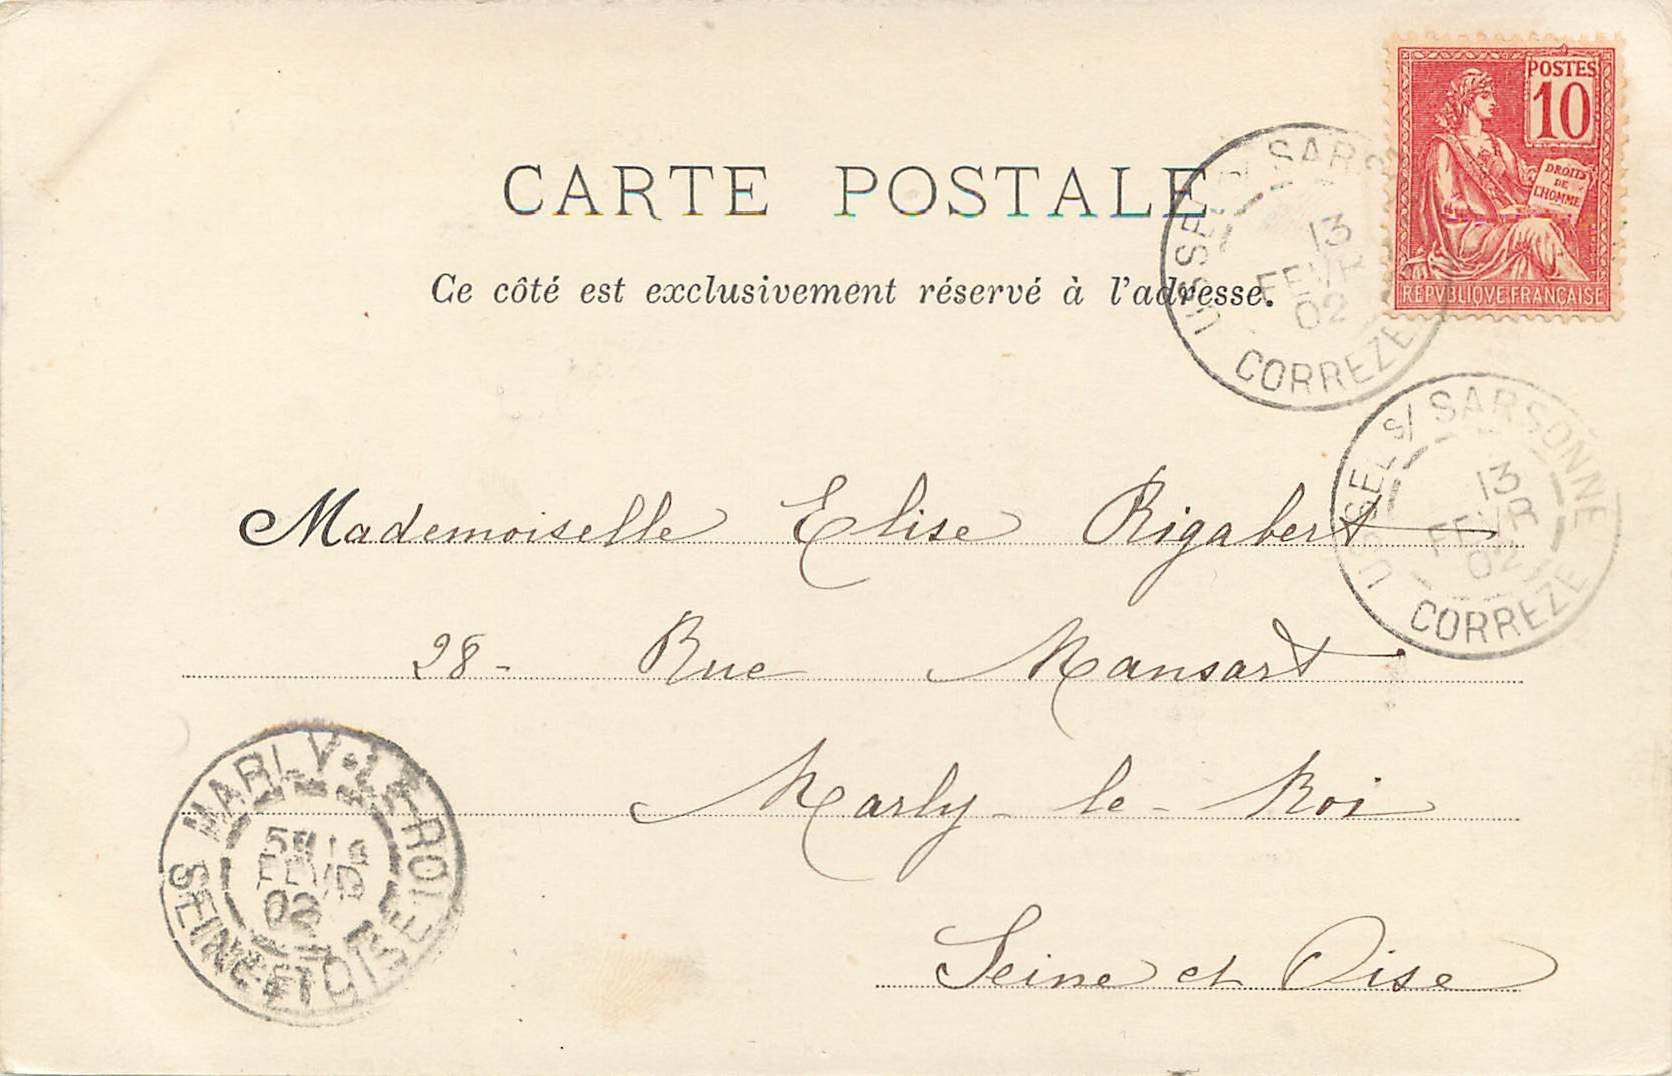 POSTES
10
DROITS
DE
L'HOMME
REPVBLIQVE FRANÇAISE
CARTE POSTALE
Ce côté est exclusivement réservé à l'adresse.
USSEL S/ SARS
13
FEVR
02
CORREZE
USSEL S/ SARSONNE
13
FEVR
02
CORREZE
Mademoiselle Elise Rigabert
28- Rue Mansart
Marly-le-Roi
Seine et Oise
MARLY-LE-ROI
02
SEINE-ET-OISE